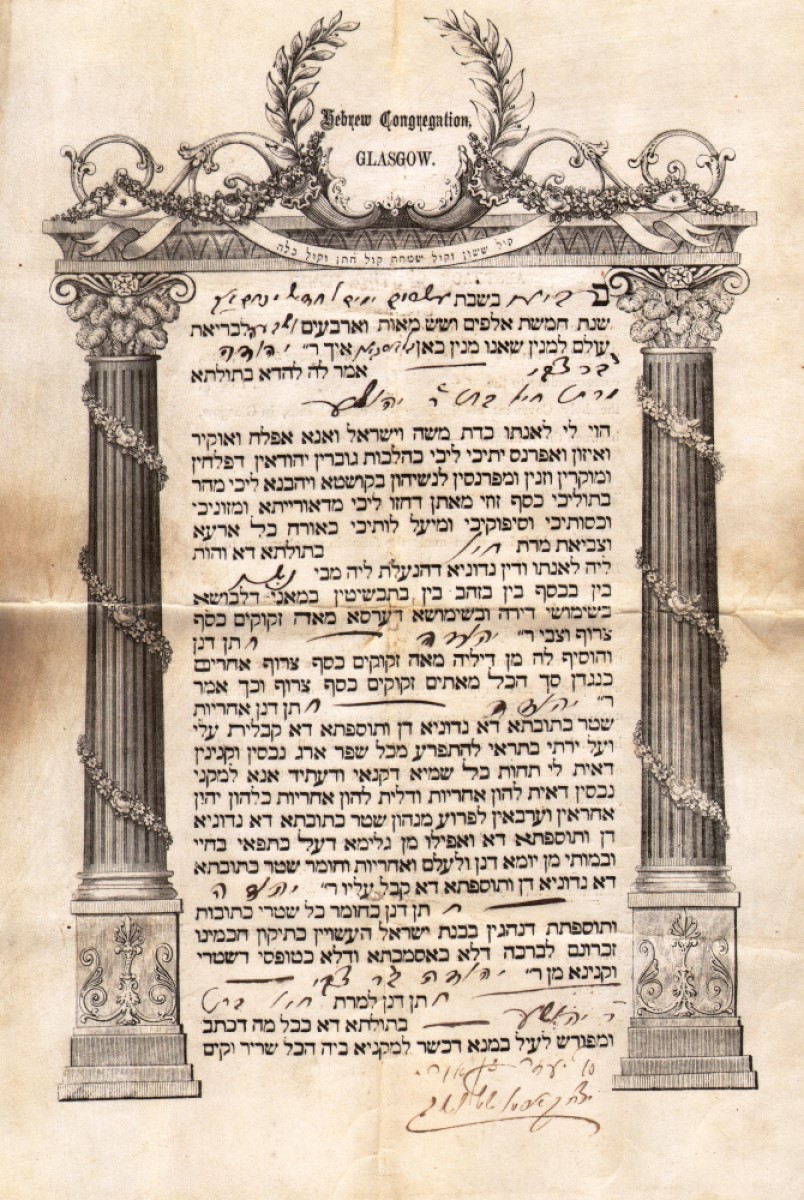 Hebrew Congregation,
GLASGOW.
קול ששון וקול שמחה קול חתן וקול כלה
בשבת
שנת חמשת אלפים ושש מאות וארבעים לבריאת
עולם למנין שאנו מנין כאן איך ר״ יהודה
בר צבי אמר לה להדא בתולתא
מרת חיא בת ר יהושע
הוי לי לאנתו כדת משה וישראל ואנא אפלח ואוקיר
ואיזון ואפרנס יתיכי ליכי כהלכות גוברין יהודאין דפלחין
ומוקרין וזנין ומפרנסין לנשיהון בקושטא ויהבנא ליכי מהר
בתוליכי כסף זוזי מאתן דחזו ליכי מדאורייתא ומזוניכי
וכסותיכי וסיפוקיכי ומיעל לותיכי כאורח כל ארעא
וצביאת מרת חיא בתולתא דא והות
ליה לאנתו ודין נדוניא דהנעלת ליה מבי
בין בכסף בין בזהב בין בתכשיטין במאני דלבושא
בשימושי דירה ובשימושא דערסא מאה זקוקים כסף
צרוף וצבי ר״ יהודה חתן דנן
והוסיף לה מן דיליה מאה זקוקים כסף צרוף אחרים
כנגדן סך הכל מאתים זקוקים כסף צרוף וכך אמר
ר״ יהודה חתן דנן אחריות
שטר כתובתא דא נדוניא דן ותוספתא דא קבלית עלי
ועל ירתי בתראי להתפרע מכל שפר ארג נכסין וקנינין
דאית לי תחות כל שמיא דקנאי ודעתיד אנא למקני
נכסין דאית להון אחריות ודלית להון אחריות כלהון יהון
אחראין וערבאין לפרוע מנהון שטר כתובתא דא נדוניא
דן ותוספתא דא ואפילו מן גלימא דעל כתפאי בחיי
ובמותי מן יומא דנן ולעלם ואחריות וחומר שטר כתובתא
דא נדוניא דן ותוספתא דא קבל עליו ר״ יהודה
חתן דנן כחומר כל שטרי כתובות
ותוספתת דנהגין בבנת ישראל העשויין כתיקון חכמינו
זכרונם לברכה דלא כאסמכתא ודלא כטופסי דשטרי
וקנינא מן ר״ יהודה בר צבי
חתן דנן למרת חיא בת
ר יהושע בתולתא דא בכל מה דכתב
ומפורש לעיל במנא דכשר למקניא ביה הכל שריר וקים